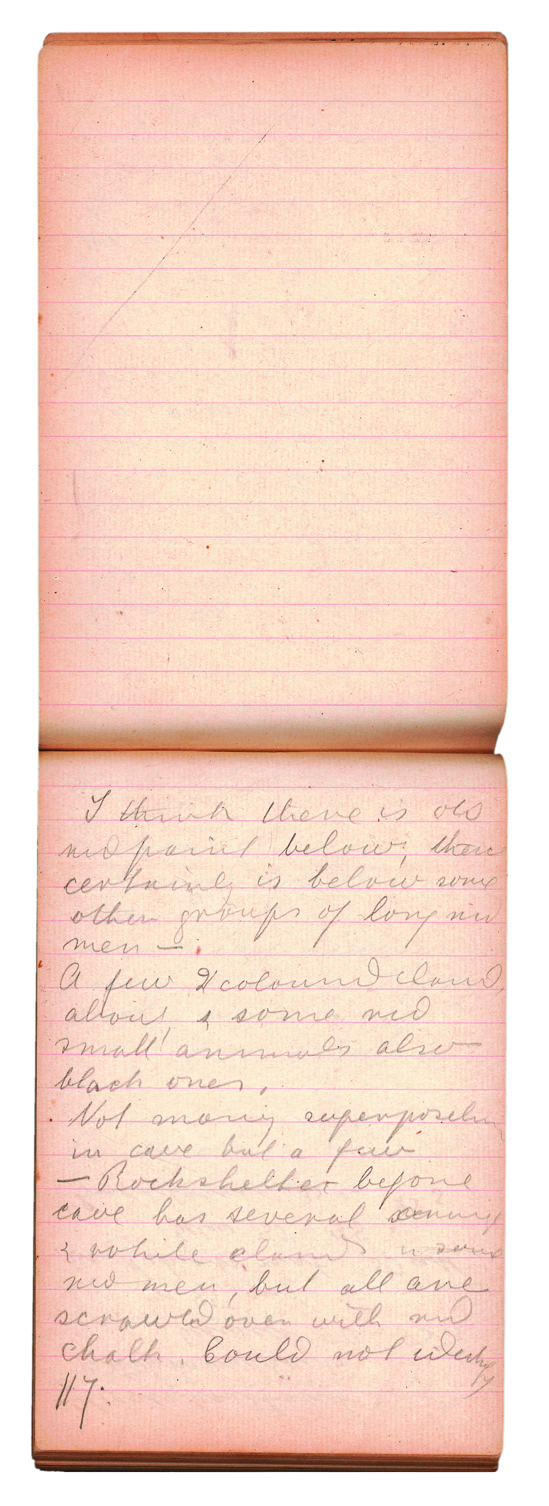 I think there is old
red paint below, there
certainly is below some
other groups of long red
men —
A few 2 coloured eland
about & some red
small animals also
black ones,
Not many superposition
in cave but a few
— Rockshelter beyond
cave has several
& white eland some
red men, but all are
scrawled over with red
chalk. Could not identify
117.